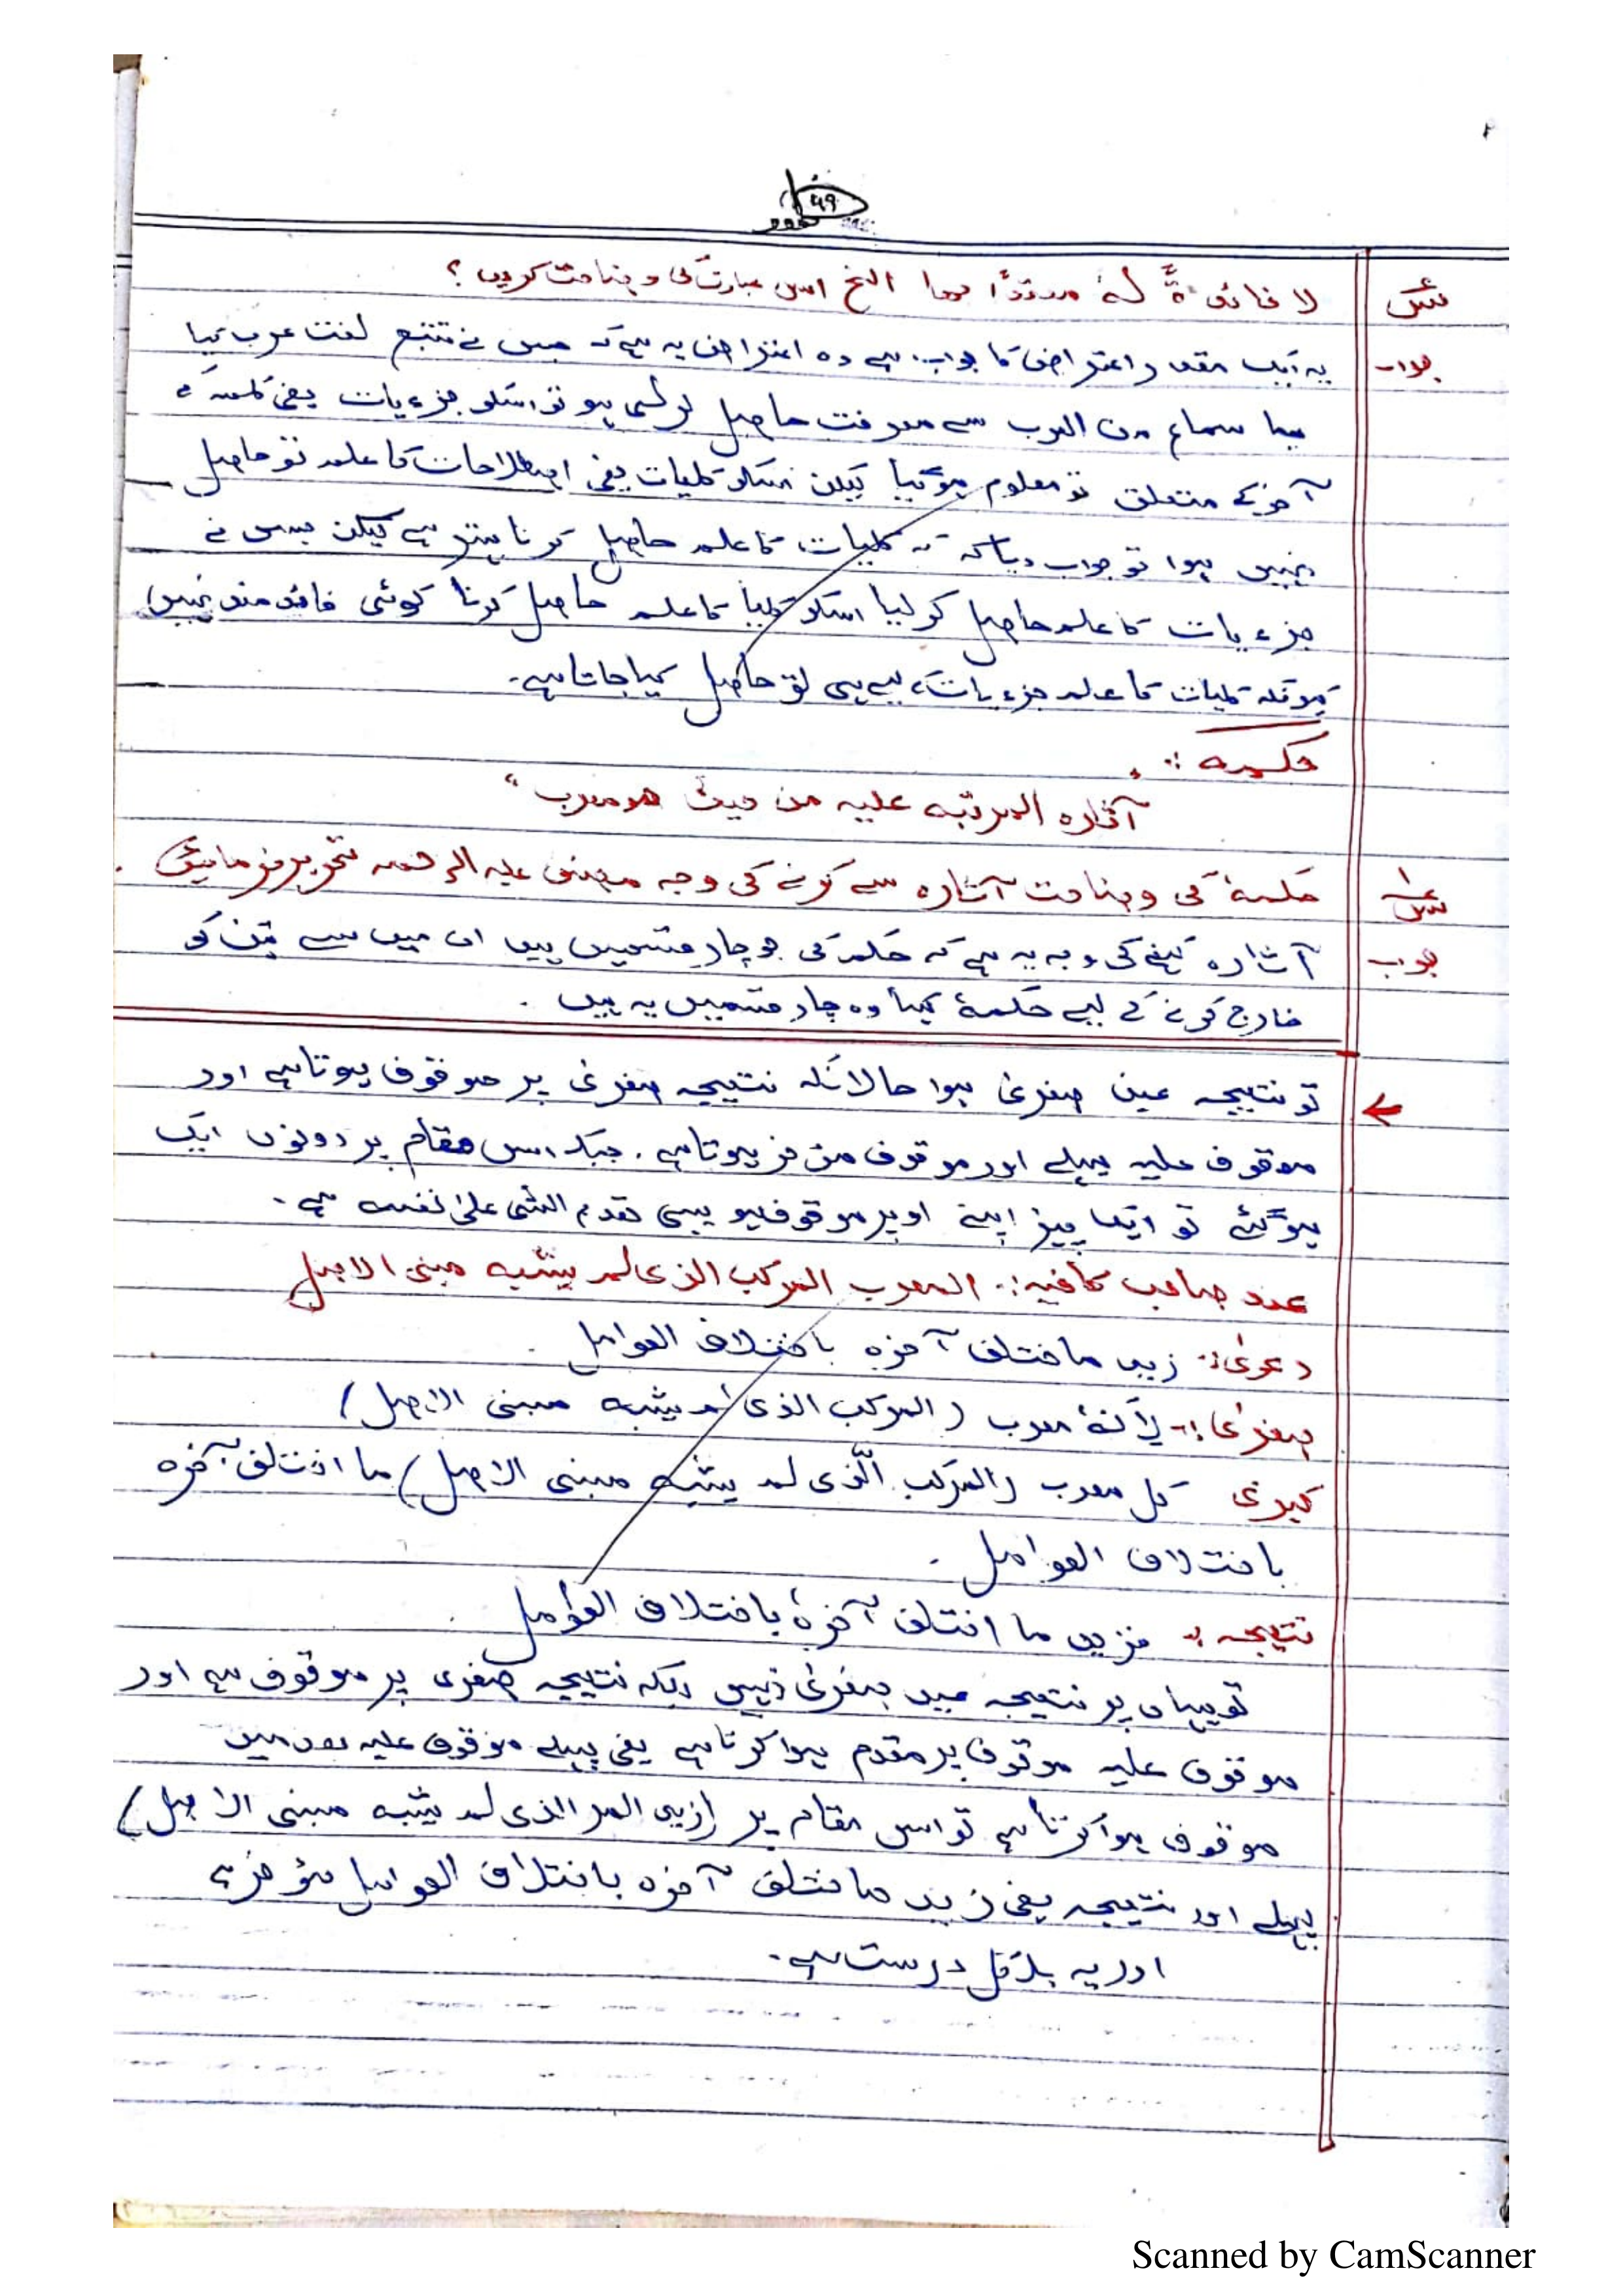 ۴۹
س لا فائدۃً لہ معتدًا بھا الخ اس عبارت کی وضاحت کریں؟
جواب یہ ایک مقدر اعتراض کا جواب ہے وہ اعتراض یہ ہے کہ جس نے تتبع لغت عرب کیا
سماع من العرب سے معرفت حاصل کر لی ہو تو اسکو جزءیات یعنی کلمہ کے
آخر کے متعلق تو معلوم ہو گیا لیکن اسکو کلیات یعنی اصطلاحات کا علم تو حاصل
نہیں ہوا تو جواب دیا کہ کلیات کا علم حاصل کرنا بہتر ہے لیکن جس نے
جزءیات کا علم حاصل کر لیا اسکو کلیات کا علم حاصل کرنا کوئی فائدہ مند نہیں
کیونکہ کلیات کا علم جزءیات کے لیے ہی تو حاصل کیا جاتا ہے۔
حکمہ :
آثارہ المرتبہ علیہ من حیث ھو معرب"
س حکمہٗ کی وضاحت آثارہ سے کرنے کی وجہ مصنف علیہ الرحمہ تحریر فرمائیں .
جوب آثارہ کہنے کی وجہ یہ ہے کہ حکم کی جو چار قسمیں ہیں ان میں سے تین کو
خارج کرنے کے لیے حکمہٗ کہا وہ چار قسمیں یہ ہیں .
← تو نتیجہ عین صغریٰ ہوا حالانکہ نتیجہ صغریٰ پر موقوف ہوتا ہے اور
موقوف علیہ پہلے اور موقوف مؤخر ہوتا ہے . جبکہ اس مقام پر دونوں ایک
ہو گئے تو ایک چیز اپنے اوپر موقوف ہو یہی تقدم الشی علیٰ نفسہ ہے .
عند صاحب کافیہ :. المعرب المرکب الذی لم یشبہ مبنی الاصل
دعویٰ :. زید ما اختلف آخرہ باختلاف العوامل .
صغریٰ :- لأنہٗ معرب (المرکب الذی لم یشبہ مبنی الاصل)
کبریٰ کل معرب (المرکب الّذی لم یشبہ مبنی الاصل) ما اختلف آخرہ
باختلاف العوامل .
نتیجہ :. فزید ما اختلف آخرہٗ باختلاف العوامل .
تو یہاں پر نتیجہ عین صغریٰ نہیں بلکہ نتیجہ صغریٰ پر موقوف ہے اور
موقوف علیہ موقوف پر مقدم ہوا کرتا ہے یعنی پہلے موقوف علیہ بعد میں
موقوف ہوا کرتا ہے تو اس مقام پر (زید المر الذی لم یشبہ مبنی الاصل)
پہلے اور نتیجہ یعنی زید ما اختلف آخرہ باختلاف العوامل مؤخر ہے
اور یہ بلکل درست ہے .
Scanned by CamScanner